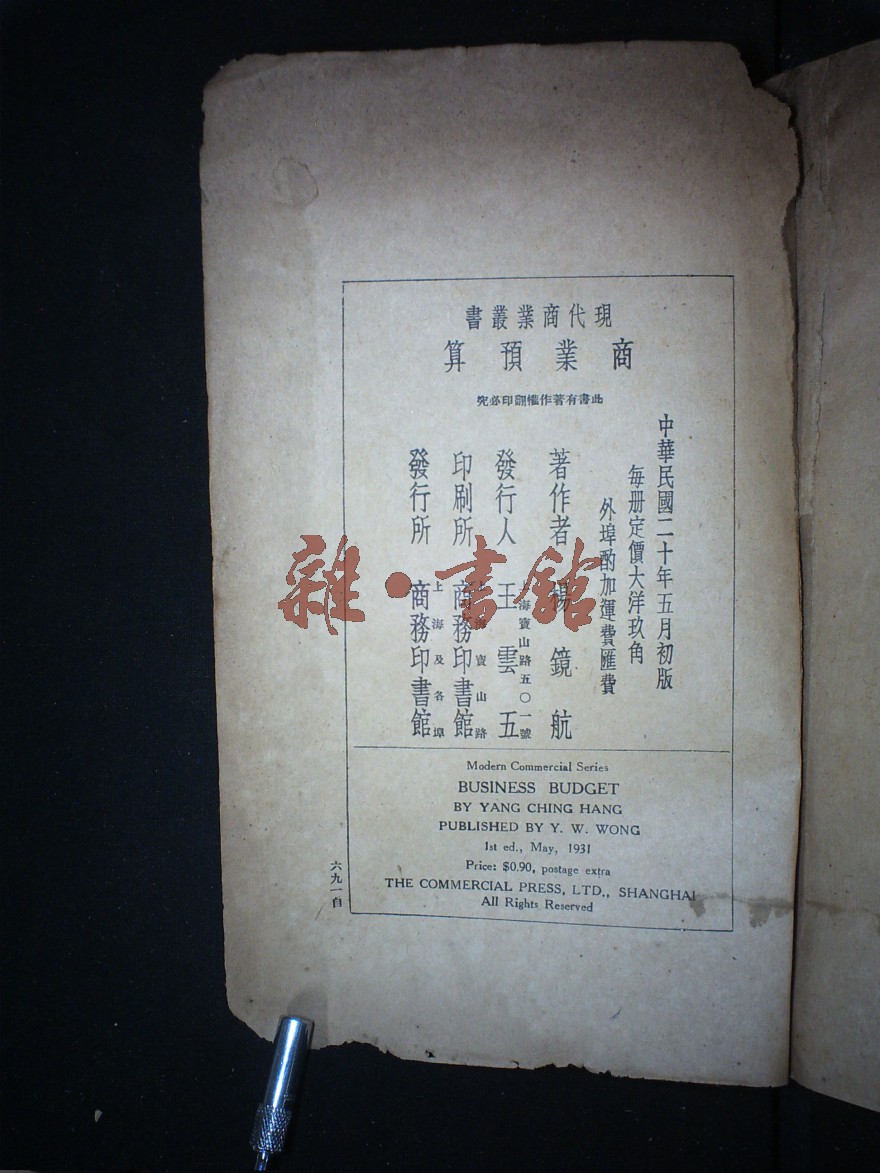 現代商業叢書
商業預算
此書有著作權翻印必究
中華民國二十年五月初版
每册定價大洋玖角
外埠酌加運費匯費
著作者 楊鏡航
發行人 王雲五
上海寶山路五〇一號
印刷所 商務印書館
上海寶山路
發行所 商務印書館
上海及各埠
Modern Commercial Series
BUSINESS BUDGET
BY YANG CHING HANG
PUBLISHED BY Y. W. WONG
1st ed., May, 1931
Price: $0.90, postage extra
THE COMMERCIAL PRESS, LTD., SHANGHAI
All Rights Reserved
六九一自
雜·書館